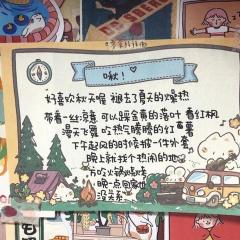 啾！
好喜欢秋天喔 褪去了夏天的燥热
带着一丝凉意 可以踩金黄的落叶 看红枫
漫天飞舞 吃热气腾腾的红薯
下午起风的时候披一件外套
晚上就找个热闹的地
方吃火锅烧烤
晚一点回家也
没关系